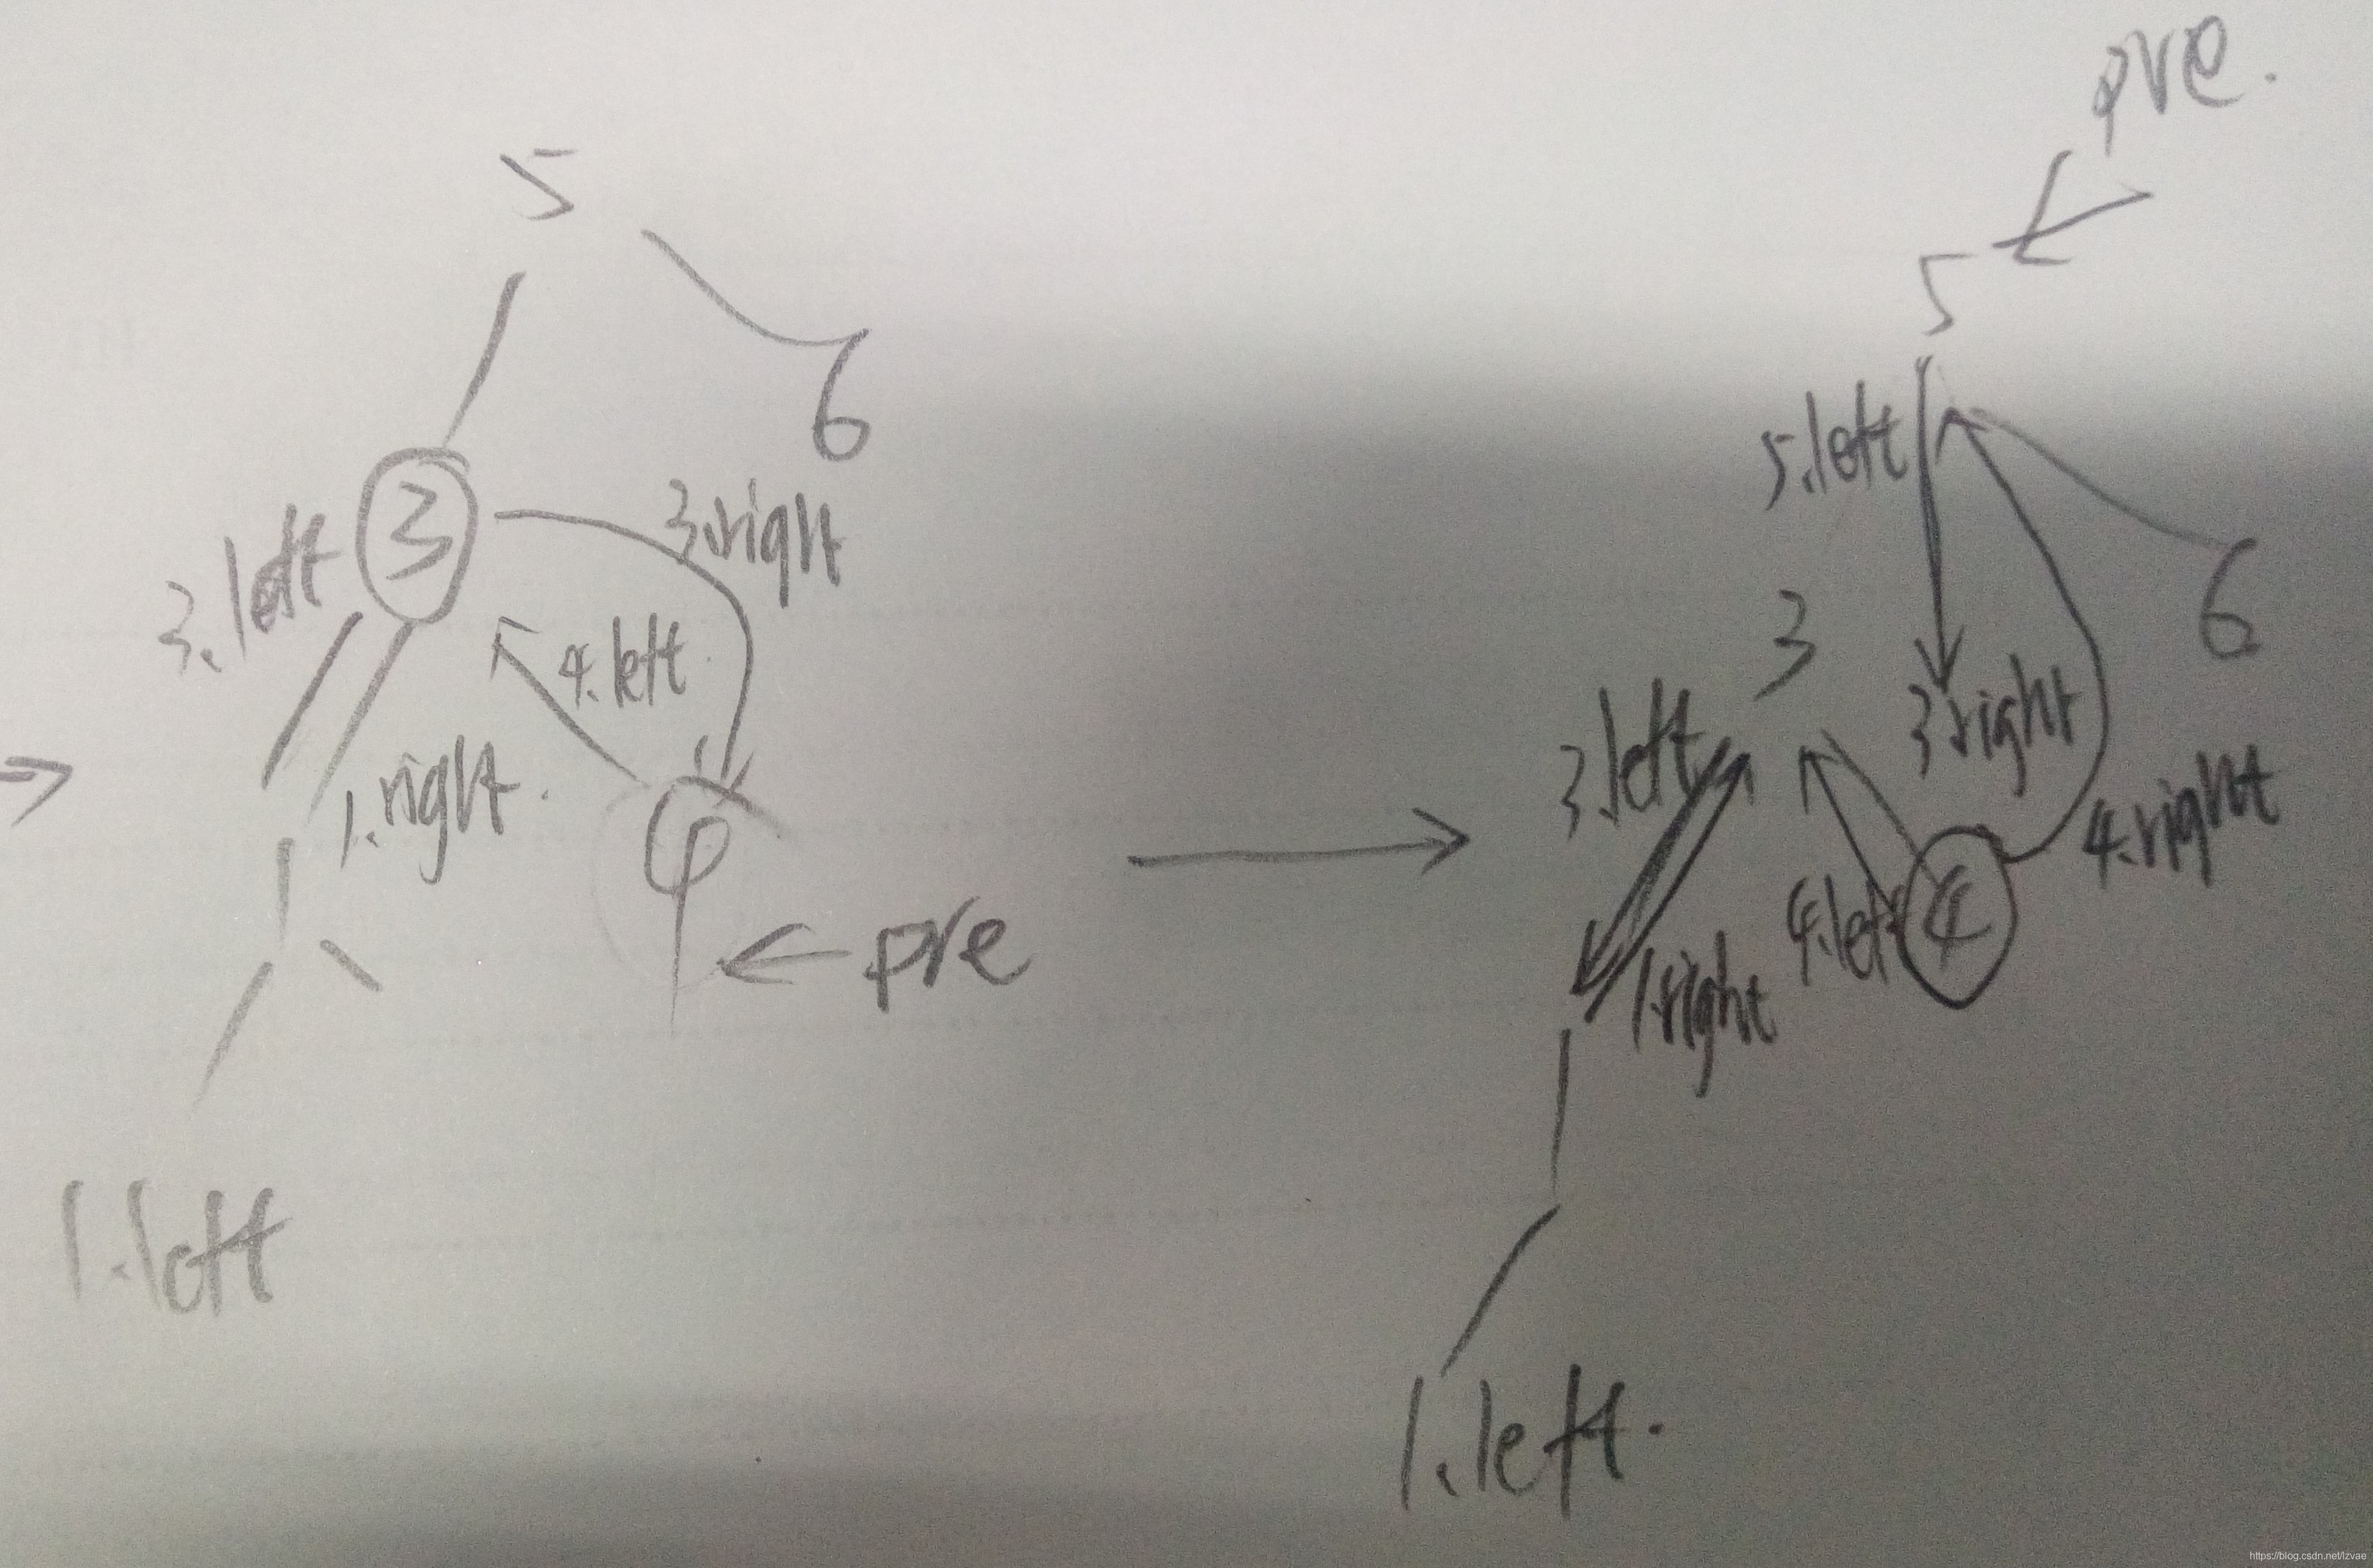 5
6
3
3.left
3.right
4.left
1.right.
4
pre
1
1.left
pre.
5
5.left
6
3
3.right
3.left
4.right
4.left
4
1.right
1
1.left.
https://blog.csdn.net/lzvae